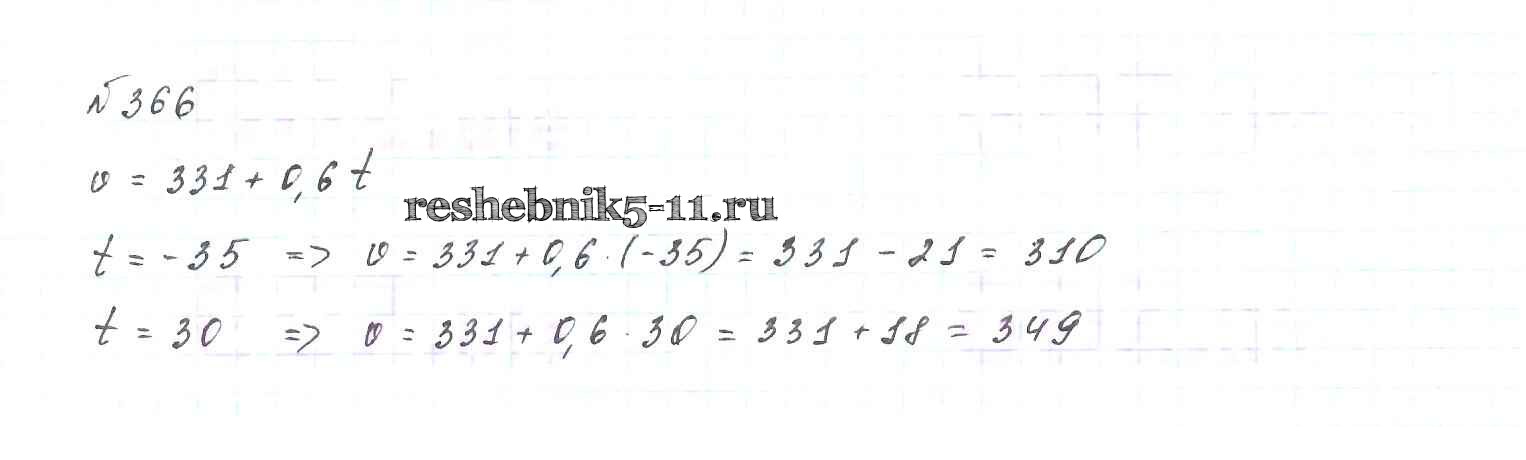 № 366
v = 331 + 0,6 t
reshebnik5-11.ru
t = -35 => v = 331 + 0,6 · (-35) = 331 - 21 = 310
t = 30 => v = 331 + 0,6 · 30 = 331 + 18 = 349